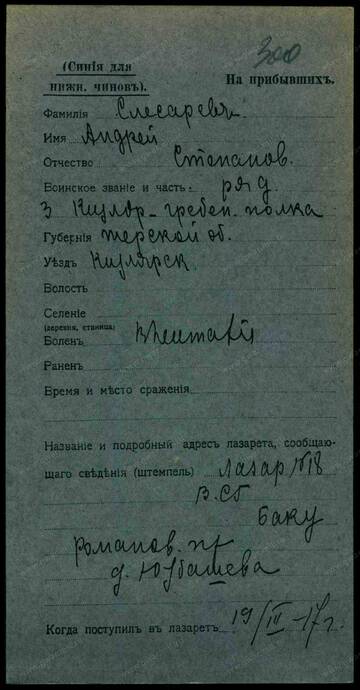 300
(Синія для
нижн. чиновъ).
На прибывшихъ.
Фамилія Слесаревъ
Имя Андрей
Отчество Степанов.
Воинское званіе и часть ряд.
3 Кизляр-гребен. полка
Губернія терской об.
Уѣздъ Кизлярск
Волость
Селеніе
(деревня, станица)
Боленъ Rheumatis
Раненъ
Время и мѣсто сраженія
Названіе и подробный адресъ лазарета, сообщаю-
щаго свѣдѣнія (штемпель) лазар №18
В.С.
Баку
Романов. пр
д. Юзбашева
Когда поступилъ въ лазаретъ 19/III-17г.